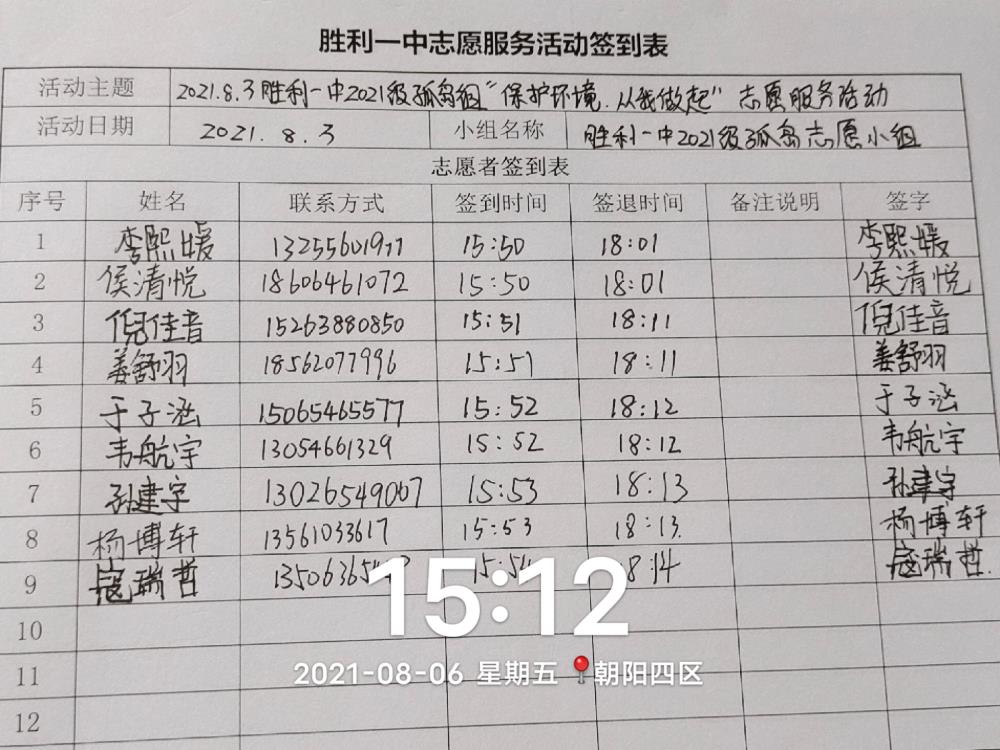 胜利一中志愿服务活动签到表
活动主题 2021.8.3胜利一中2021级孤岛组“保护环境.从我做起”志愿服务活动
活动日期 2021.8.3 小组名称 胜利一中2021级孤岛志愿小组
志愿者签到表
序号 姓名 联系方式 签到时间 签退时间 备注说明 签字
1 李熙媛 13255601977 15:50 18:01 李熙媛
2 侯清悦 18606461072 15:50 18:01 侯清悦
3 倪佳音 15263880850 15:51 18:11 倪佳音
4 姜舒羽 18562077996 15:51 18:11 姜舒羽
5 于子涵 15065465577 15:52 18:12 于子涵
6 韦航宇 13054661329 15:52 18:12 韦航宇
7 孙建宇 13026549067 15:53 18:13 孙建宇
8 杨博轩 13561033617 15:53 18:13. 杨博轩
9 寇瑞哲 15:54 8:14 寇瑞哲.
10
11
12
15:12
2021-08-06 星期五 朝阳四区